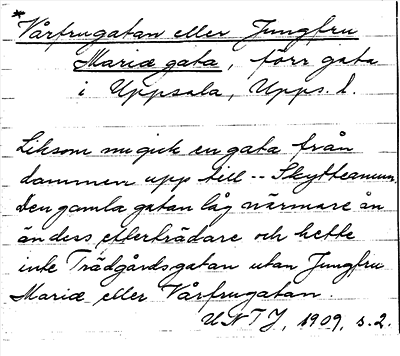 *Vårfrugatan eller Jungfru
Mariæ gata, förr gata
i Uppsala, Upps. l.
Liksom nu gick en gata från
dammen upp till -- Skytteanum.
Den gamla gatan låg närmare ån
än dess efterträdare och hette
inte Trädgårdsgatan utan Jungfru
Mariæ eller Vårfrugatan.
UNT J, 1909, s. 2.